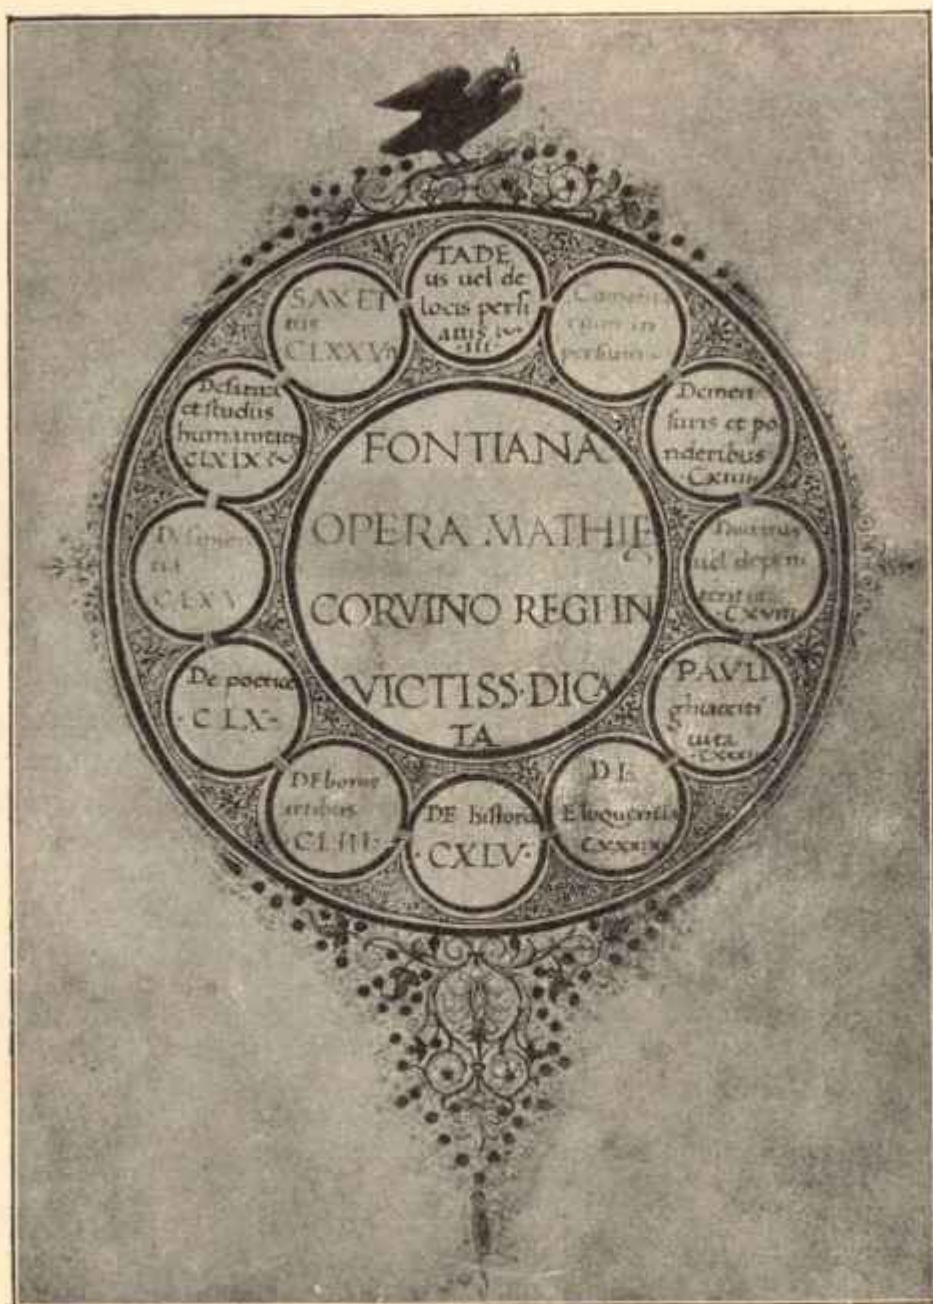 FONTIANA
OPERA MATHIĘ
CORVINO REGI IN
VICTISS·DICA
TA
TADE
us uel de
locis persi
anis
·III·
Comenta
rium in
persium
De men
suris et po
nderibus
CXIIII
Donatus
uel de peni
CXVIII
PAVLI
ghiaceti
uita
DE
Eloquentia
DE historia
·CXLV·
DE bonis
artibus
·CLIII·
De poetice
·CLX·
De sapien
tia
CLXV
et studiis
humanitatis
CLXIX
SAXETI
CLXXV